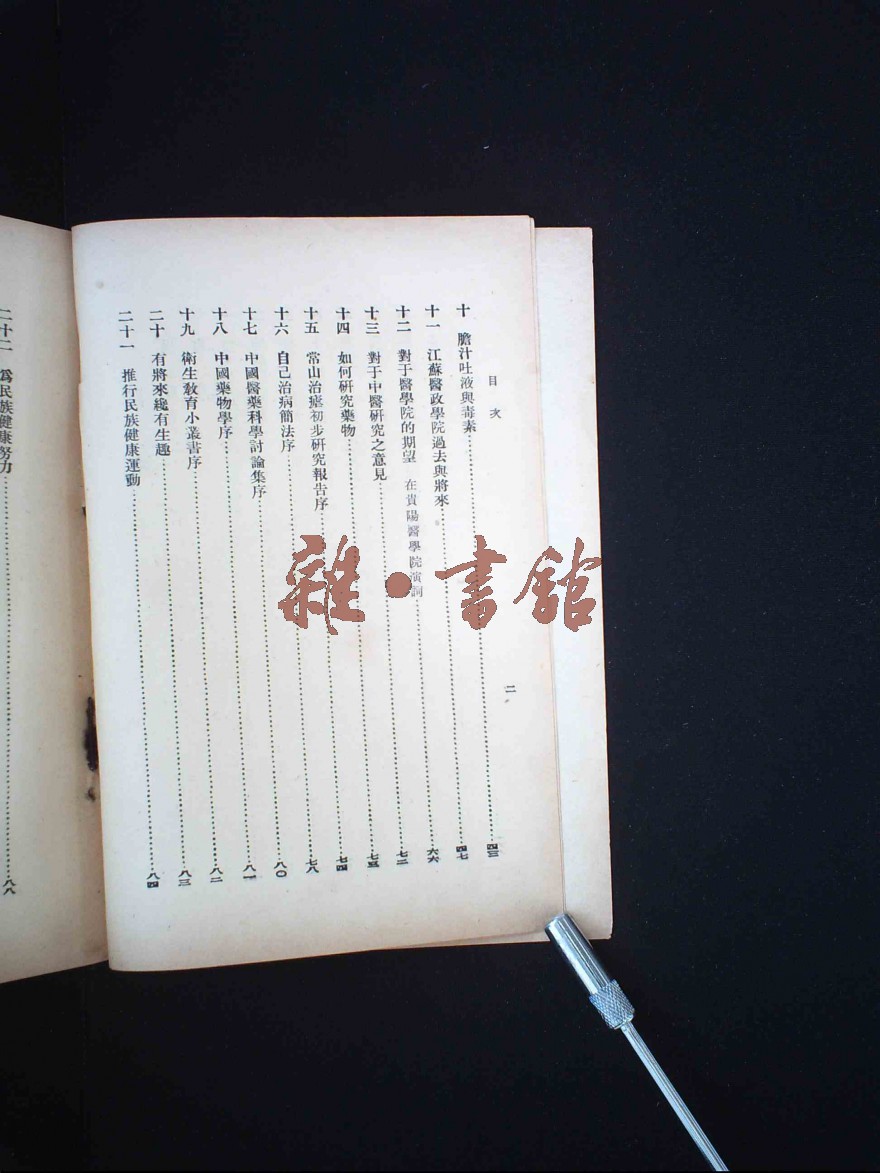 目次
二
十 膽汁吐液與毒素……四三
十一 江蘇醫政學院過去與將來……四七
十二 對于醫學院的期望 在貴陽醫學院演詞……六六
十三 對于中醫研究之意見……七二
十四 如何研究藥物……七五
十五 常山治瘧初步研究報告序……七四
十六 自己治病簡法序……七八
十七 中國醫藥科學討論集序……八〇
十八 中國藥物學序……八一
十九 衛生教育小叢書序……八二
二十 有將來纔有生趣……八三
二十一 推行民族健康運動……八四
二十二 為民族健康努力……八八
雜·書館